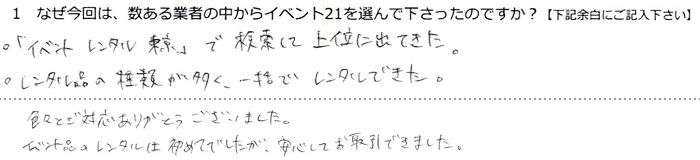 1　なぜ今回は、数ある業者の中からイベント21を選んで下さったのですか？【下記余白にご記入下さい】
。「イベント レンタル 東京」で検索して上位に出てきた。
。レンタル品の種類が多く、一括でレンタルできた。
色々とご対応ありがとうございました。
イベント品のレンタルは初めてでしたが、安心してお取引できました。